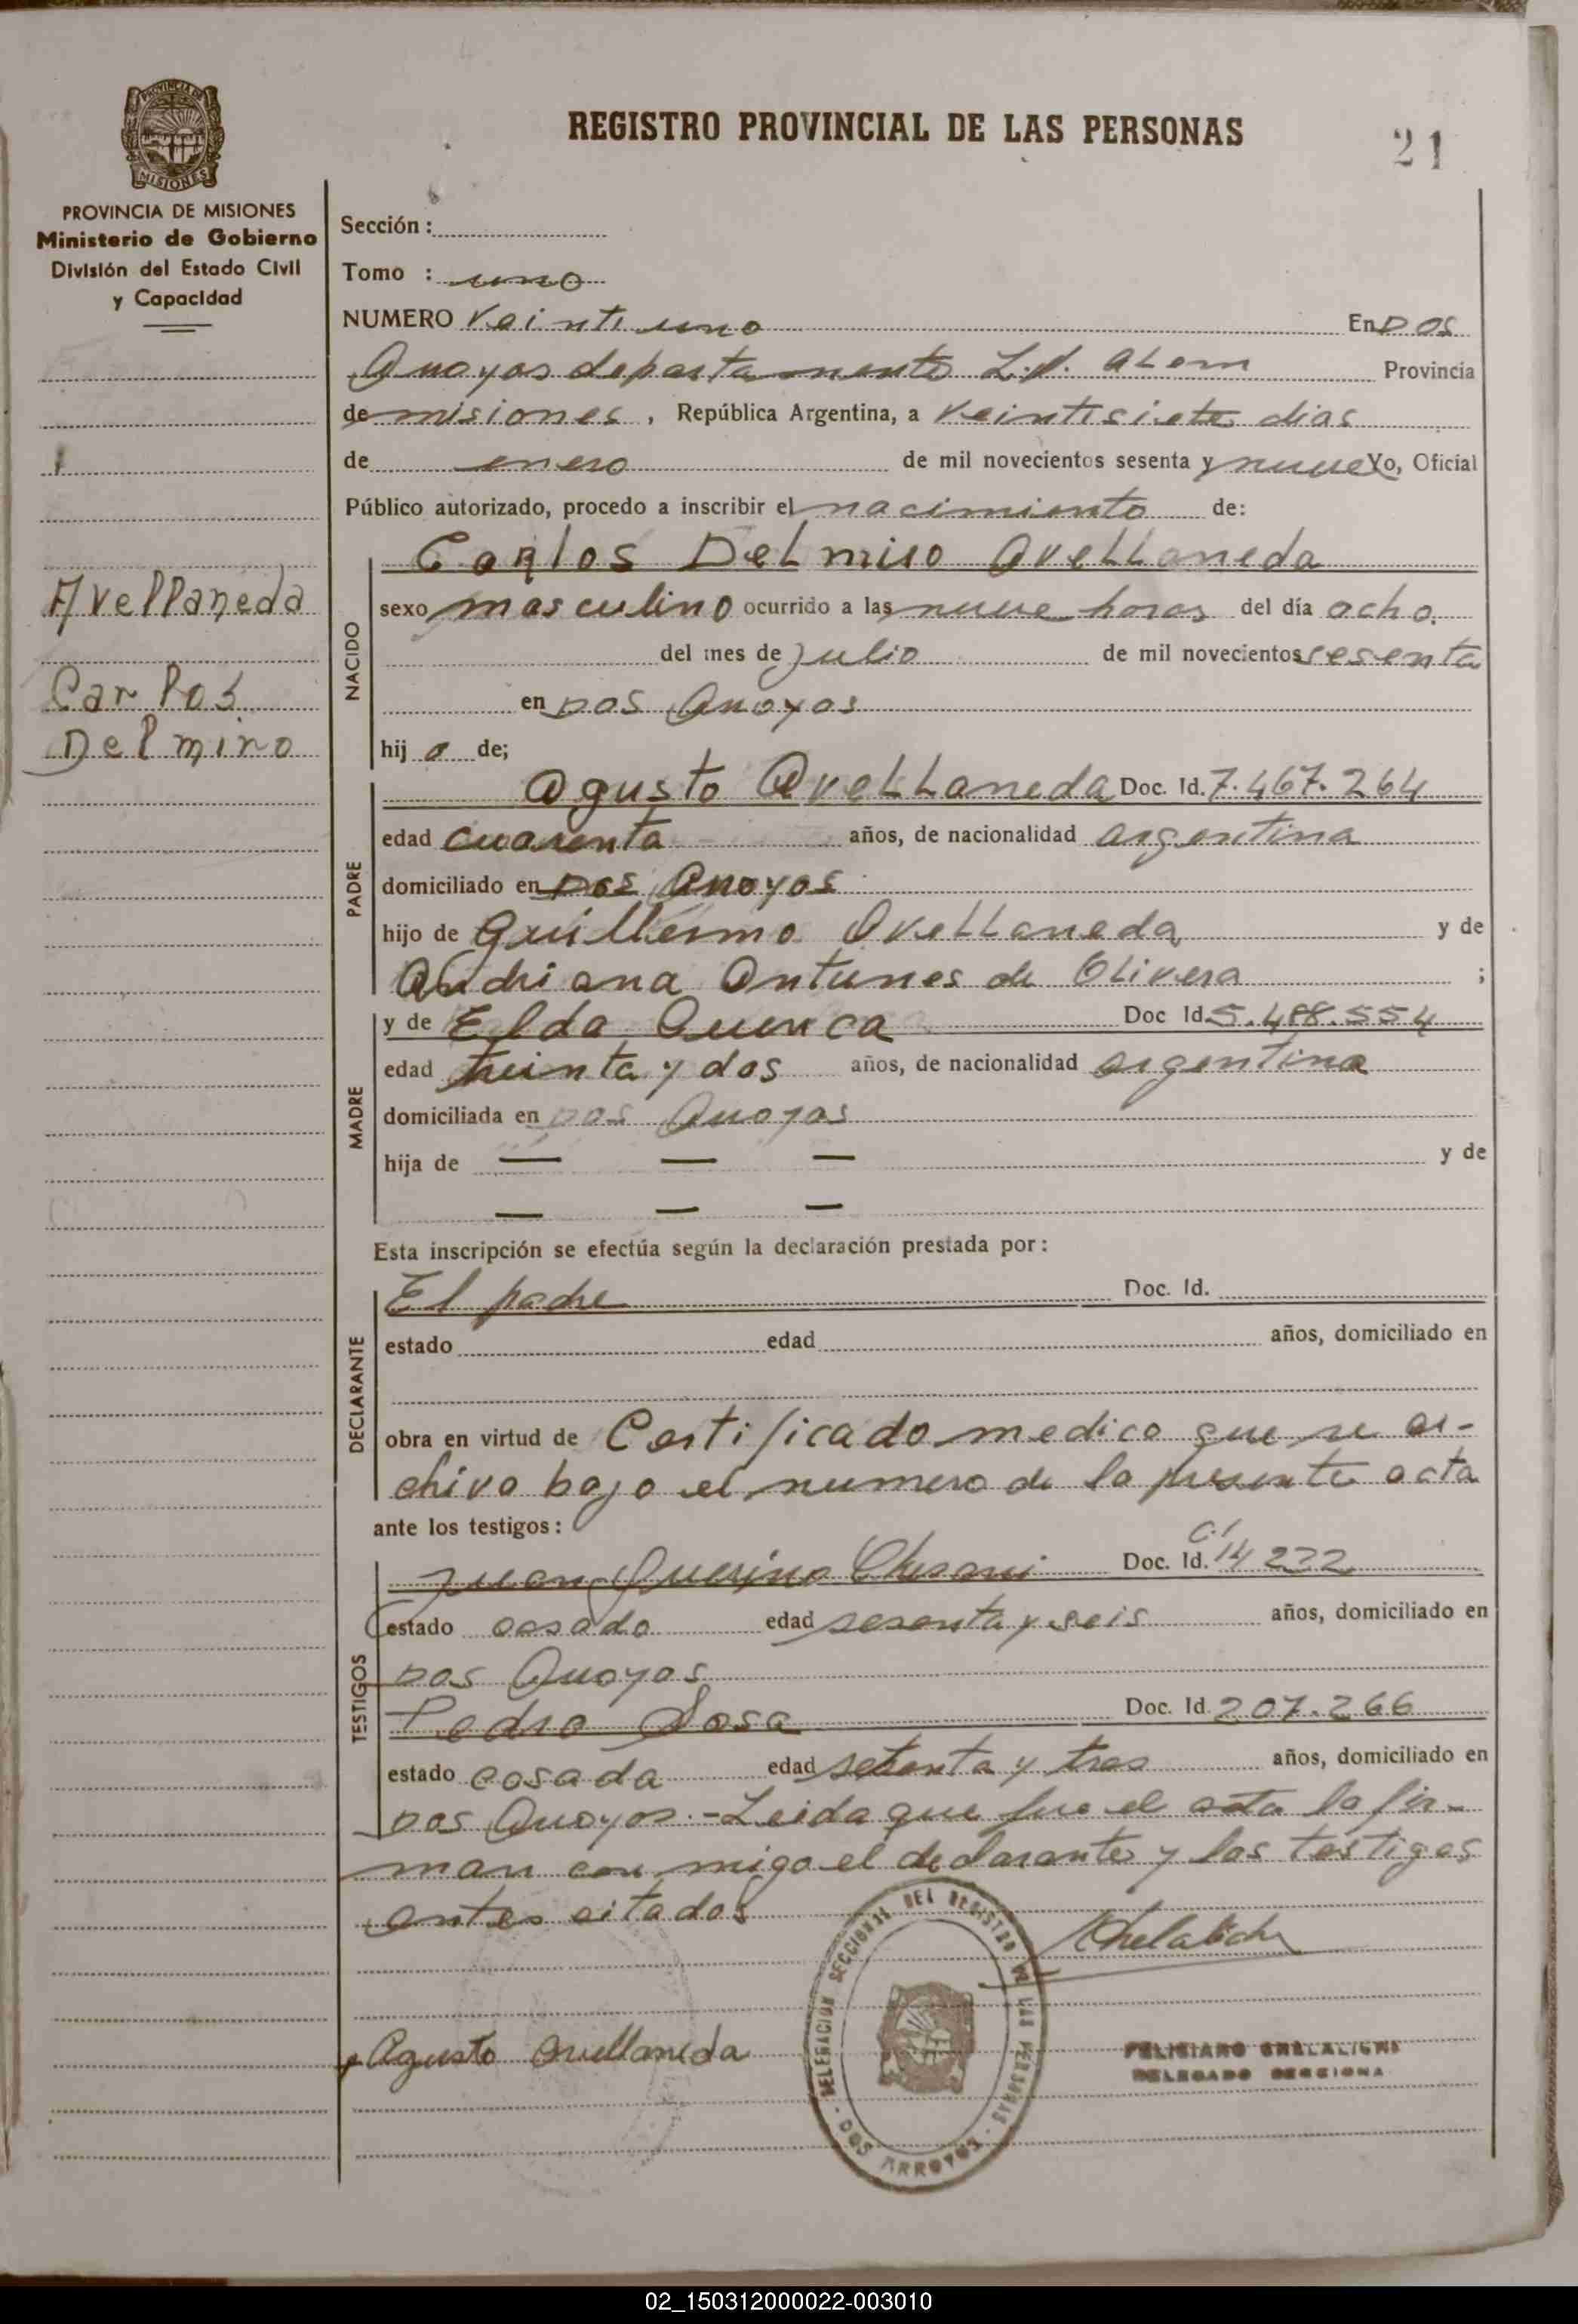 REGISTRO PROVINCIAL DE LAS PERSONAS
21
PROVINCIA DE MISIONES
PROVINCIA DE MISIONES
Ministerio de Gobierno
División del Estado Civil
y Capacidad
Avellaneda
Carlos
Delmiro
Sección :
Tomo : uno
NUMERO Veintiuno En Dos
Arroyos departamento L.N. Alem Provincia
de misiones, República Argentina, a Veintisiete dias
de enero de mil novecientos sesenta y nueve Yo, Oficial
Público autorizado, procedo a inscribir el nacimiento de:
NACIDO
Carlos Delmiro Avellaneda
sexo masculino ocurrido a las nueve horas del día ocho
del mes de Julio de mil novecientos sesenta
en Dos Arroyos
hij o de;
PADRE
Agusto Avellaneda Doc. Id. 7.467.264
edad cuarenta años, de nacionalidad argentina
domiciliado en Dos Arroyos
hijo de Guillermo Avellaneda y de
Andriana Antunes de Olivera ;
MADRE
y de Elda Cuenca Doc Id. 5.488.554
edad treinta y dos años, de nacionalidad argentina
domiciliada en Dos Arroyos
hija de — — — y de
— — —
Esta inscripción se efectúa según la declaración prestada por:
DECLARANTE
El padre Doc. Id.
estado edad años, domiciliado en
obra en virtud de Certificado medico que se ar-
chiva bajo el numero de la presente acta
ante los testigos:
TESTIGOS
Juan Querino Doc. Id. C.I 14232
estado casado edad sesenta y seis años, domiciliado en
Dos Arroyos
Pedro Sosa Doc. Id. 207.266
estado casada edad setenta y tres años, domiciliado en
Dos Arroyos.- Leida que fue el acta la fir-
man con migo el declarante y los testigos
antes citados
DELEGACION SECCIONAL DEL REGISTRO DE LAS PERSONAS - DOS ARROYOS -
Agusto Avellaneda
FELISIANO CHELALICHE
DELEGADO SECCIONA
02_150312000022-003010